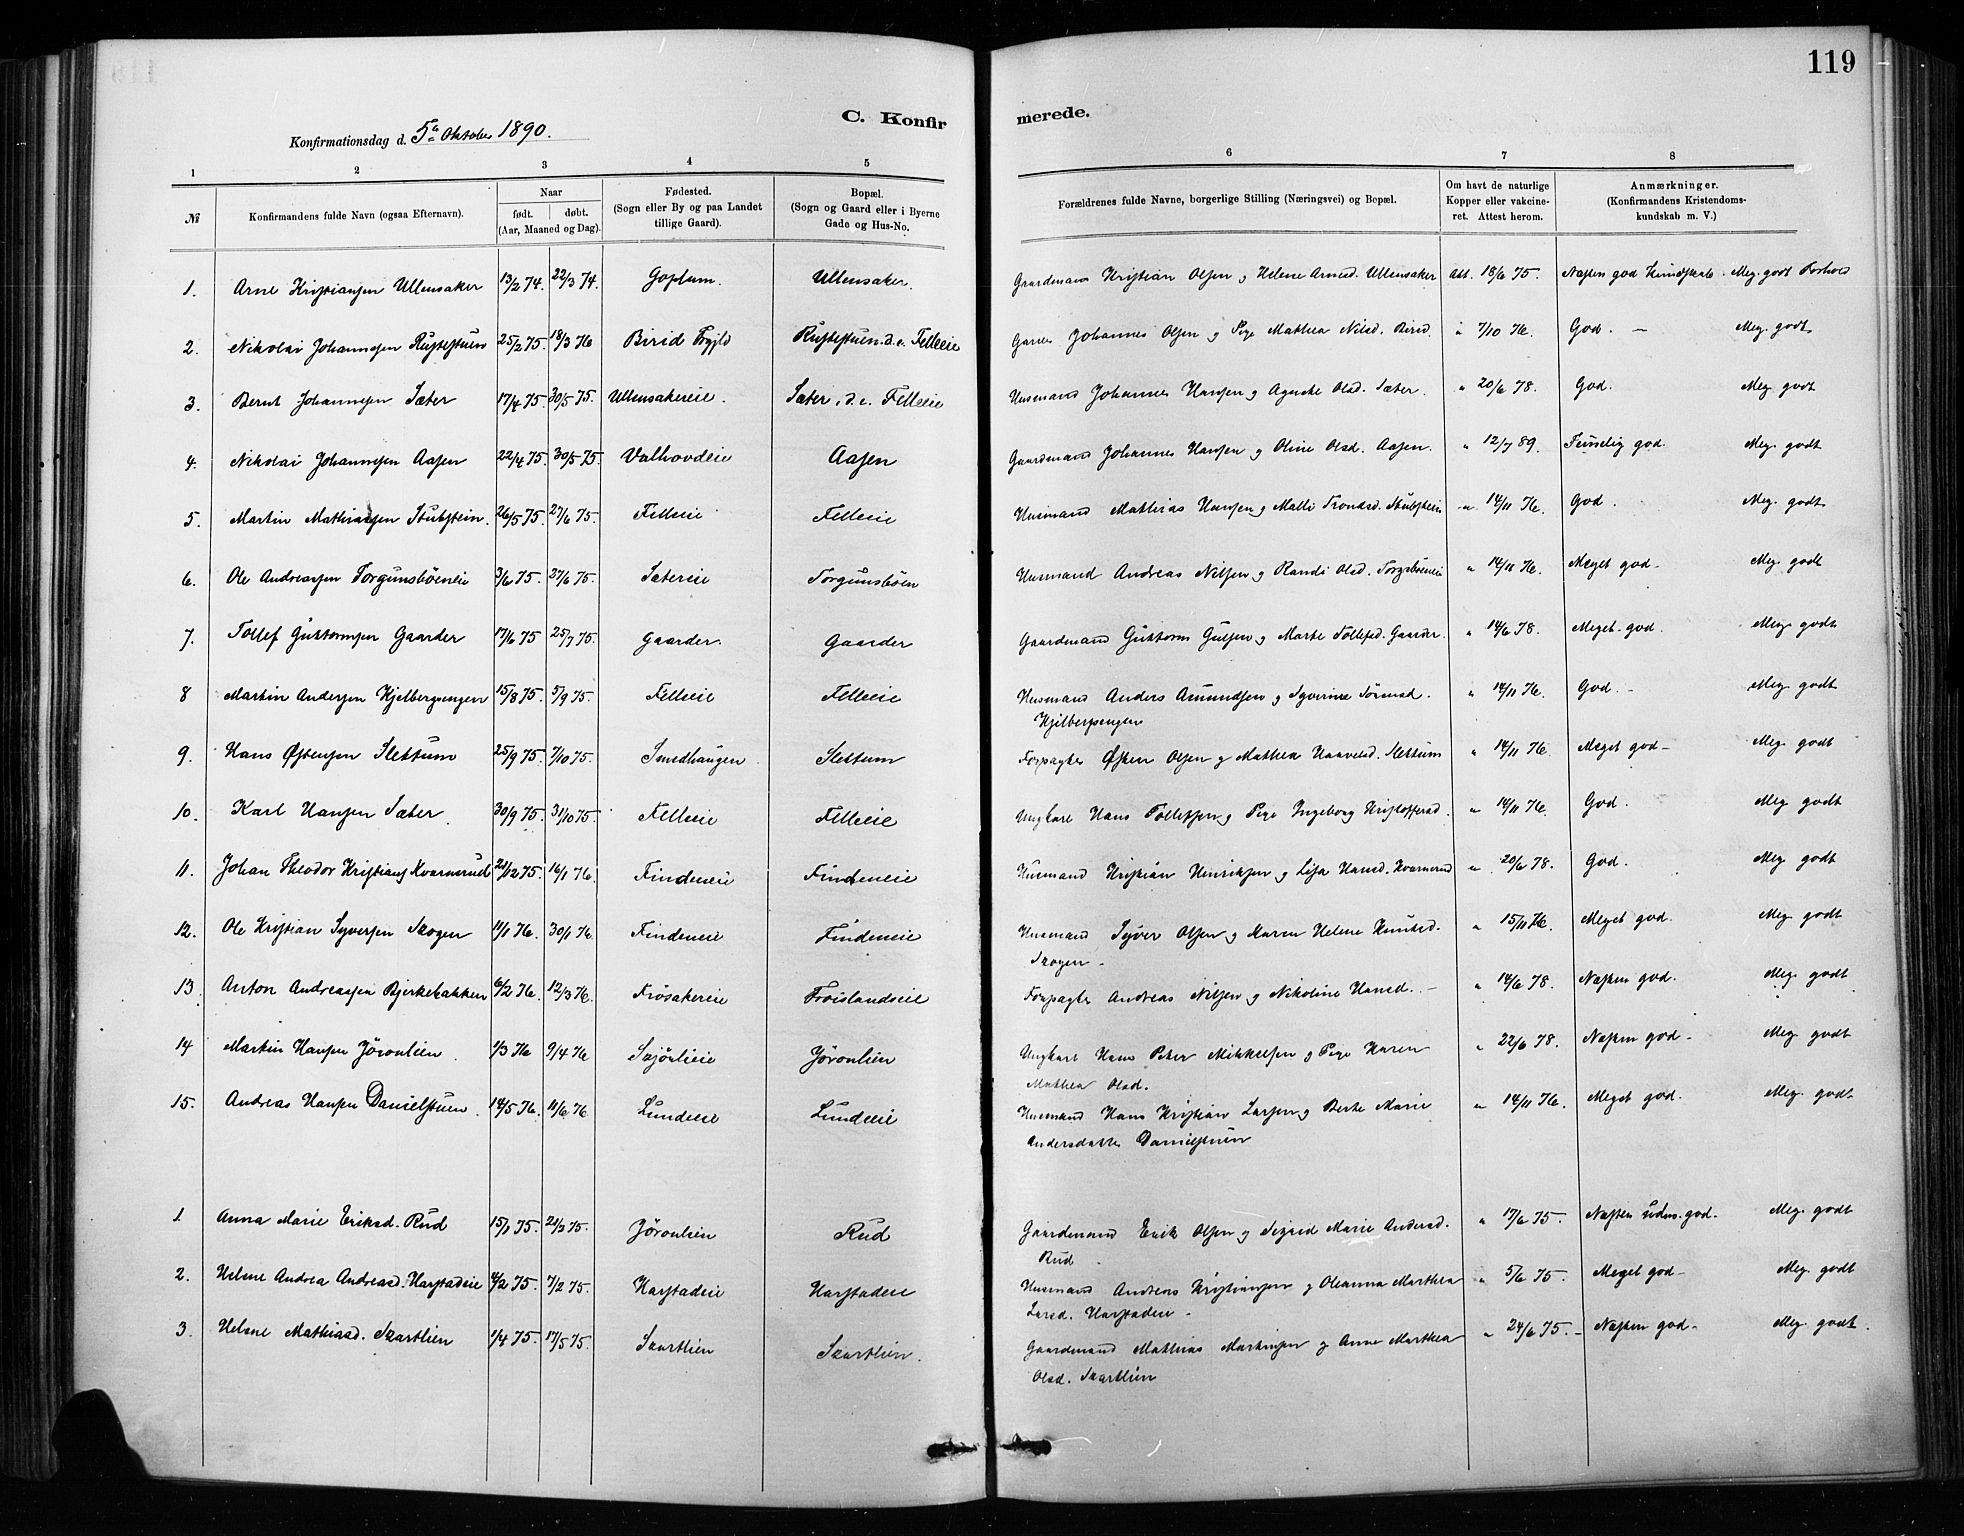 119
C. Konfirmerede.
Konfirmationsdag d. 5te Oktober 1890.
1 2 3 4 5 6 7 8
№ Konfirmandens fulde Navn (ogsaa Efternavn). Naar født. døbt. (Aar, Maaned og Dag). Fødested. (Sogn eller By og paa Landet tillige Gaard). Bopæl. (Sogn og Gaard eller i Byerne Gade og Hus-No. Forældrenes fulde Navne, borgerlige Stilling (Næringsvei) og Bopæl. Om havt de naturlige Kopper eller vakcineret. Attest herom. Anmærkninger. (Konfirmandens Kristendomskundskab m. V.)
1. Arne Kristiansen Ullensaker 13/2 74. 22/3 74. Goplum. Ullensaker. Gaardmand Kristian Olsen og Helene Arnesd. Ullensaker Att. 18/6 75. Næsten god Kundskab. Meg. godt Forhold
2. Nikolai Johannesen Rustestuen 25/2 75. 18/3 76 Birid Rustestuen. d. e. Felleie Johannes Olsen og Pige Mathea Nilsd. Birid. " 7/10 76. God. — Meg. godt
3. Bernt Johannesen Sæter 17/4 75. 30/5 75. Ullensakereie. Sæter. d. e. Felleie Husmand Johannes Hansen og Agnethe Olsd. Sæter. " 20/6 78. God. Meg. godt
4. Nikolai Johannesen Aasen 22/4 75. 30/5 75. Valhovdeie Aasen Gaardmand Johannes Hansen og Oline Olsd. Aasen. " 12/7 89. Temmelig god. Meg. godt
5. Martin Mathiassen Stubstein. 26/5 75. 27/6 75. Felleie Felleie Husmand Mathias Hansen og Malli Trondsd. Stubstein " 14/11 76. God. Meg. godt
6. Ole Andreassen Torgunsbøeneie 3/6 75. 27/6 75. Sætereie Torgunsbøen Husmand Andreas Nilsen og Randi Olsd. " 14/11 76. Meget god- Meg. godt
7. Tollef Guttormsen Gaarder 17/6 75 25/7 75. Gaarder. Gaarder Gaardmand Guttorm Gulsen og Marte Tollefsd. Gaarder. " 14/6 78. Meget god. Meg. godt
8 Martin Andersen Kjelbergengen 15/8 75. 5/9 75. Felleie Felleie Husmand Anders Amundsen og Syverine " 14/11 76. God. - Meg. godt
Kjelbergengen
9. Hans Østensen Slettum 25/9 75. 7/10 75. Smedhaugen Slettum Forpagter Østen Olsen og Mathea Haavelsd. Slettum " 14/11 76. Meget god- Meg. godt
10. Karl Hansen Sæter. 30/9 75. 31/10 75. Felleie Felleie Ungkarl Hans Tollefsen og Pige Ingeborg Kristoffersd. " 14/11 76. God. Meg. godt
11. Johan Theodor Kristians Kvarnerud 21/12 75. 16/1 76. Findeneie Findeneie Husmand Kristian Henriksen og Lisa Hansd. Kvarnerud " 20/6 78. God. Meg. godt
12. Ole Kristian Syversen Skogen 11/1 76. 30/1 76. Findeneie Findeneie Husmand Syver Olsen og Maren Helene Knutsd. " 15/11 76. Meget god. Meg. godt
Skogen -
13. Anton Andreassen Bjerkebakken 6/2 76. 12/3 76. Frøsakereie Frøislandseie Forpagter Andreas Nilsen og Nikoline Hansd. - " 14/6 78. Næsten god. Meg. godt
14 Martin Hansen Jøronlien. 1/3 76 9/4 76 Jøronlien Ungkarl Hans Peter Mikkelsen og Pige Karen " 22/6 78. Næsten god- Meg. godt
Mathea Olsd.
15. Andreas Hansen Danielstuen. 14/5 76. 11/6 76 Lundeie Lundeie Husmand Hans Kristian Larsen og Berte Marie " 14/11 76. Meget god. Meg. godt
Andersdatter Danielstuen
1. Anna Marie Eriksd. Rud 15/1 75. 21/3 75. Jøronlien Rud Gaardmand Erik Olsen og Sigrid Marie Andersd. " 17/6 75. Næsten udm. god. Meg. godt
Rud
2. Helene Andrea Andreasd. Harstadeie 4/2 75. 7/2 75. Harstadeie Harstadeie Husmand Andreas Kristiansen og Oleanna Marthea " 5/6 75. Meget god- Meg. godt
Larsd. Harstadeie -
3. Helene Mathiasd. Skartlien 1/4 75. 17/5 75. Skartlien Skartlien. Gaardmand Mathias Martinsen og Anne Marthea " 24/6 75. - Næsten god- Meg. godt.
Olsd. Skartlien